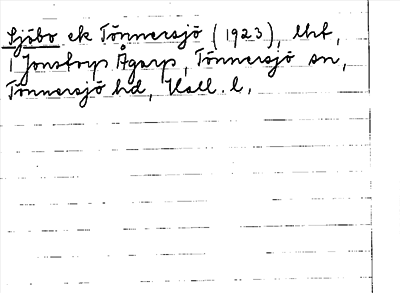 Sjöbo ek Tönnersjö (1923), lht,
i Jonstorps Ågarp, Tönnersjö sn,
Tönnersjö hd, Hall. l.